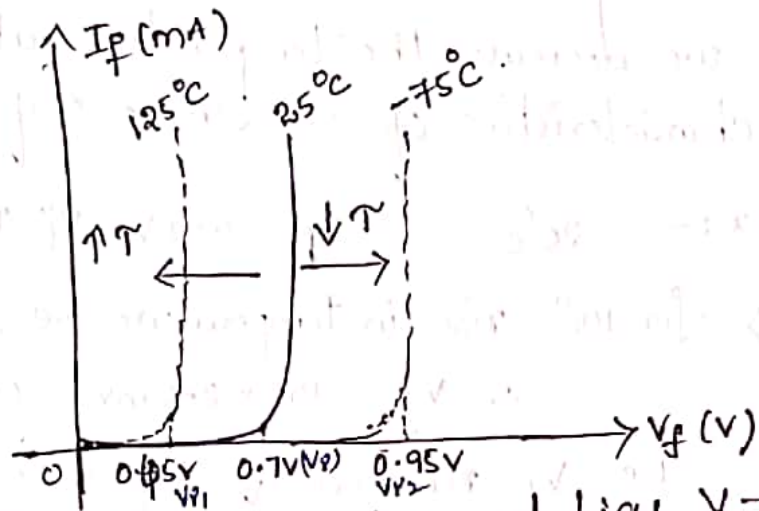 If (mA)
125°C 25°C -75°C.
↑T ↓T
Vf (V)
0 0.45V 0.7V(Vγ) 0.95V
Vγ1 Vγ2